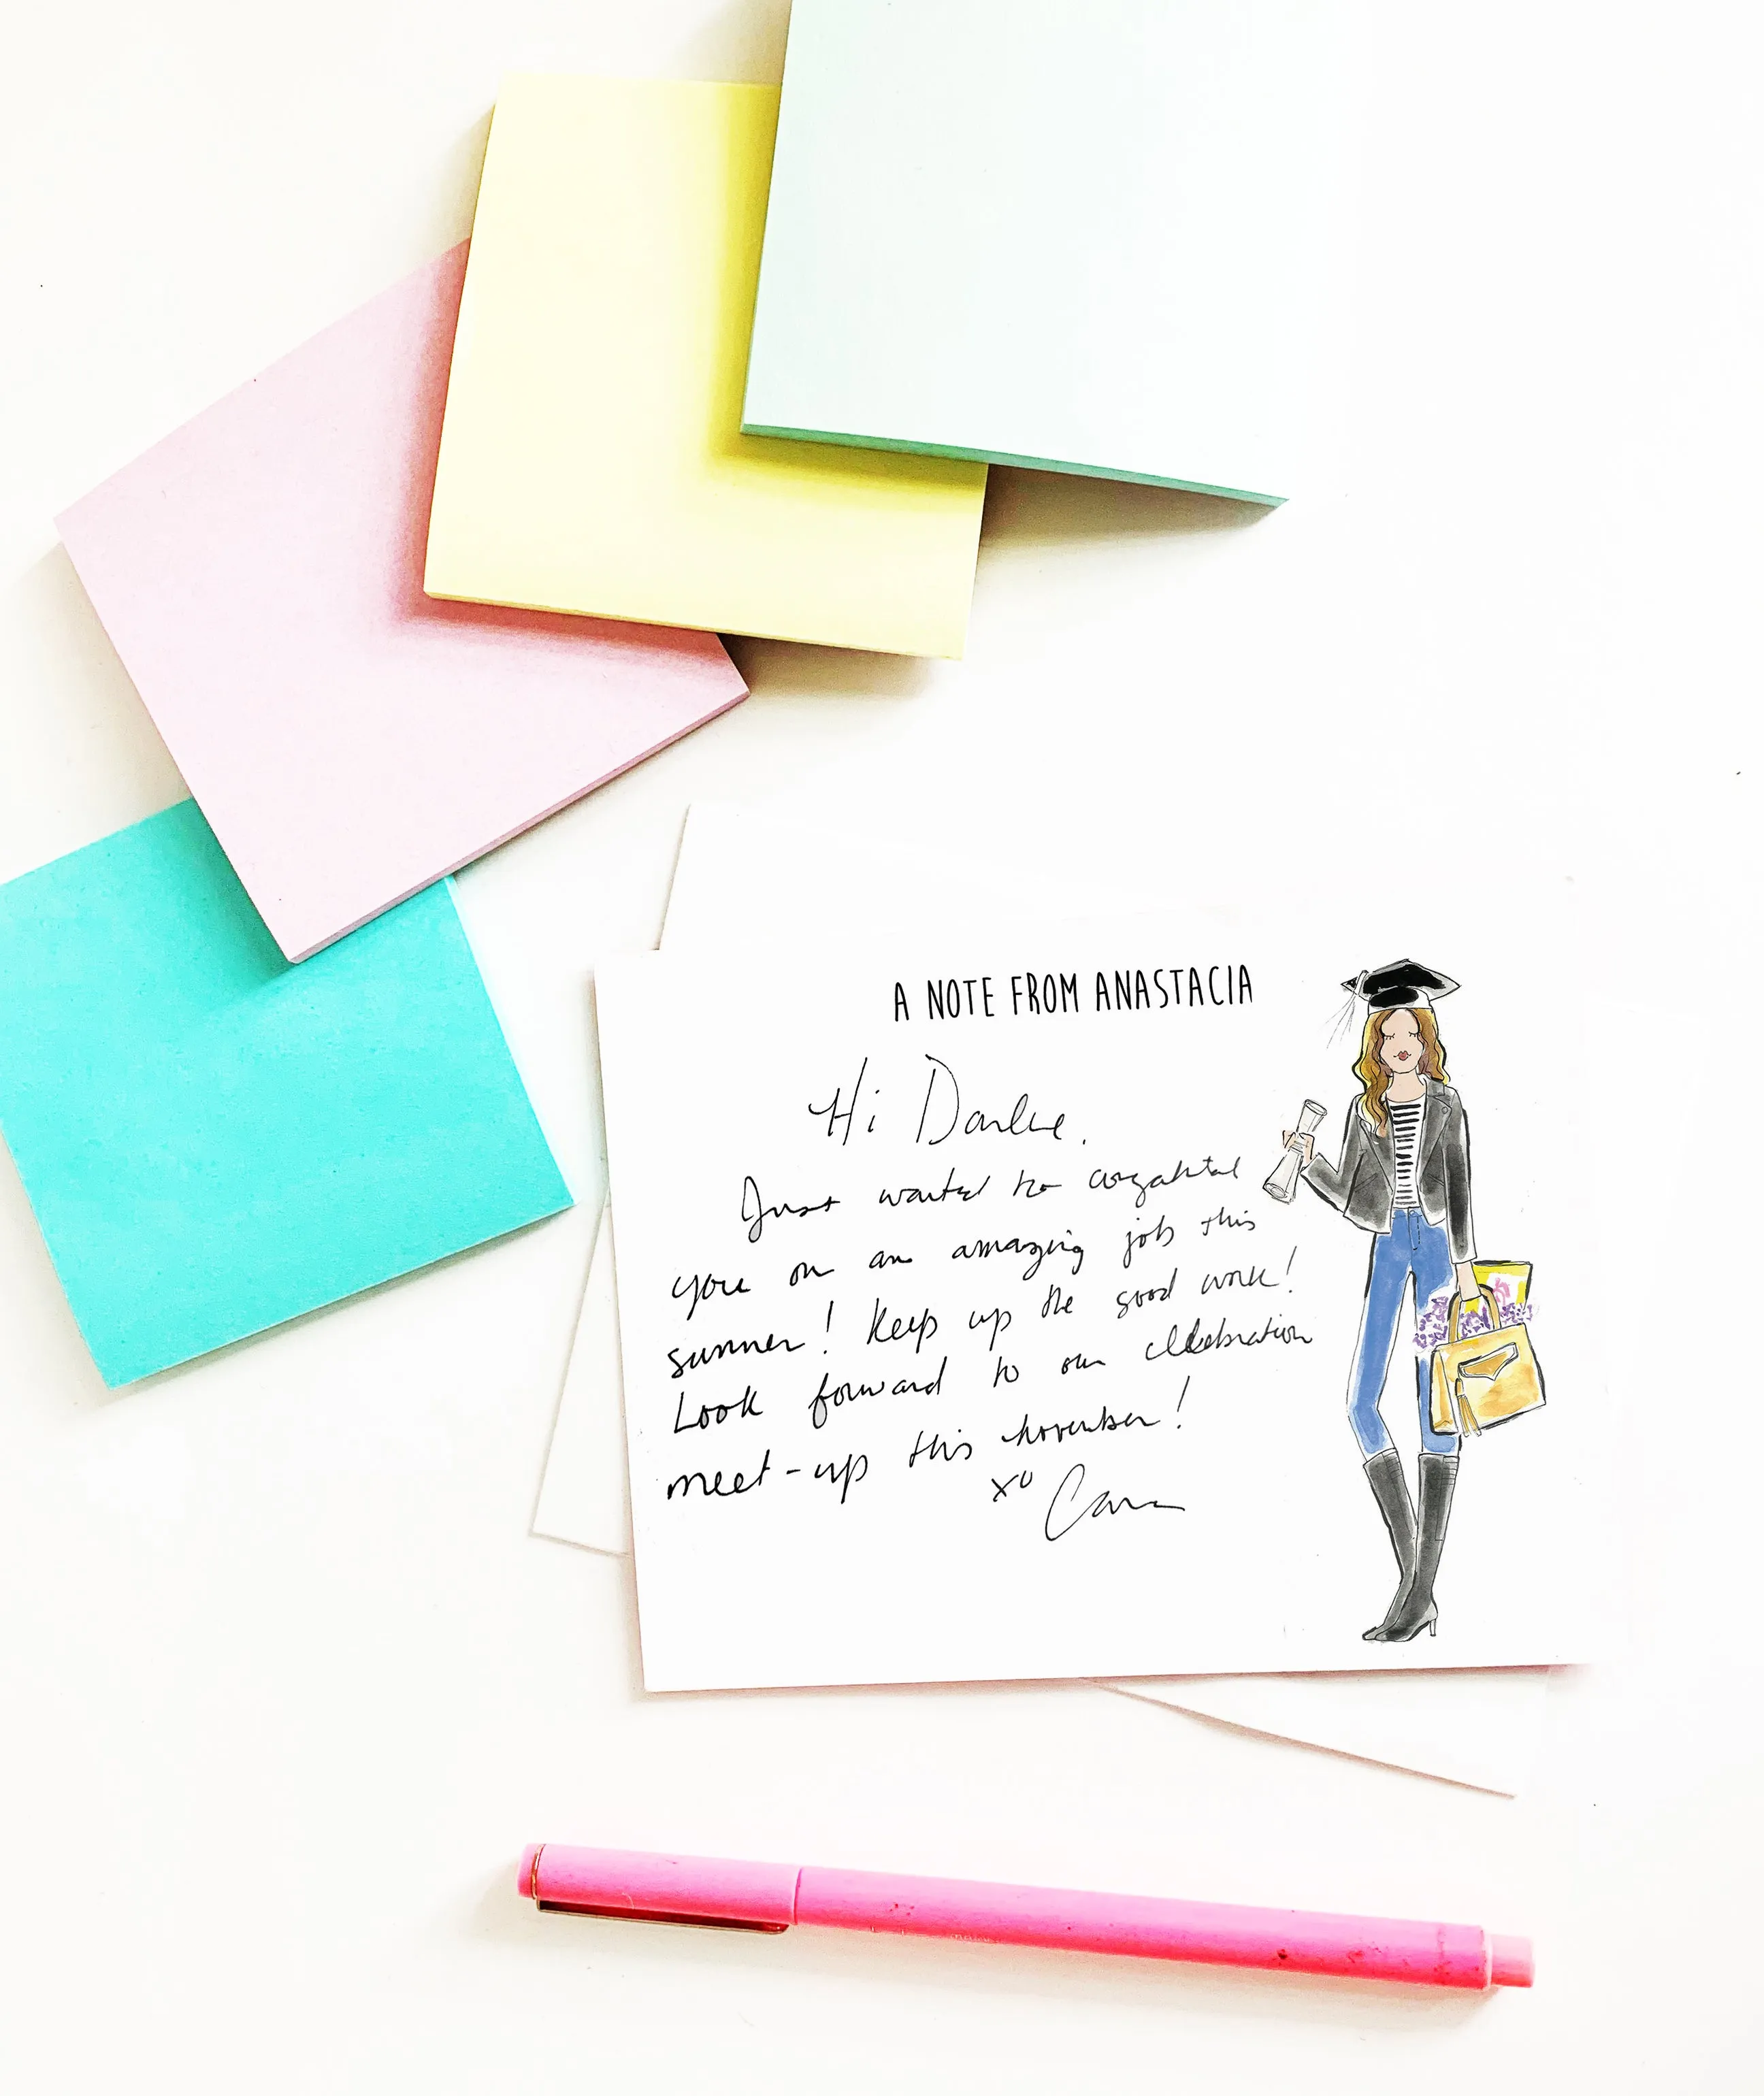 A NOTE FROM ANASTACIA
Hi Darlene,
Just wanted to
you on an amazing job this
summer! Keep up the good work!
Look forward to our celebration
meet-up this November!
xo Cara